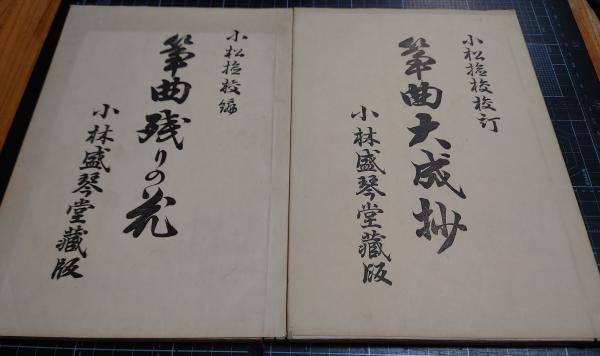 小松検校校訂
箏曲大成抄
小林盛琴堂蔵版
小松検校編
箏曲残りの花
小林盛琴堂蔵版